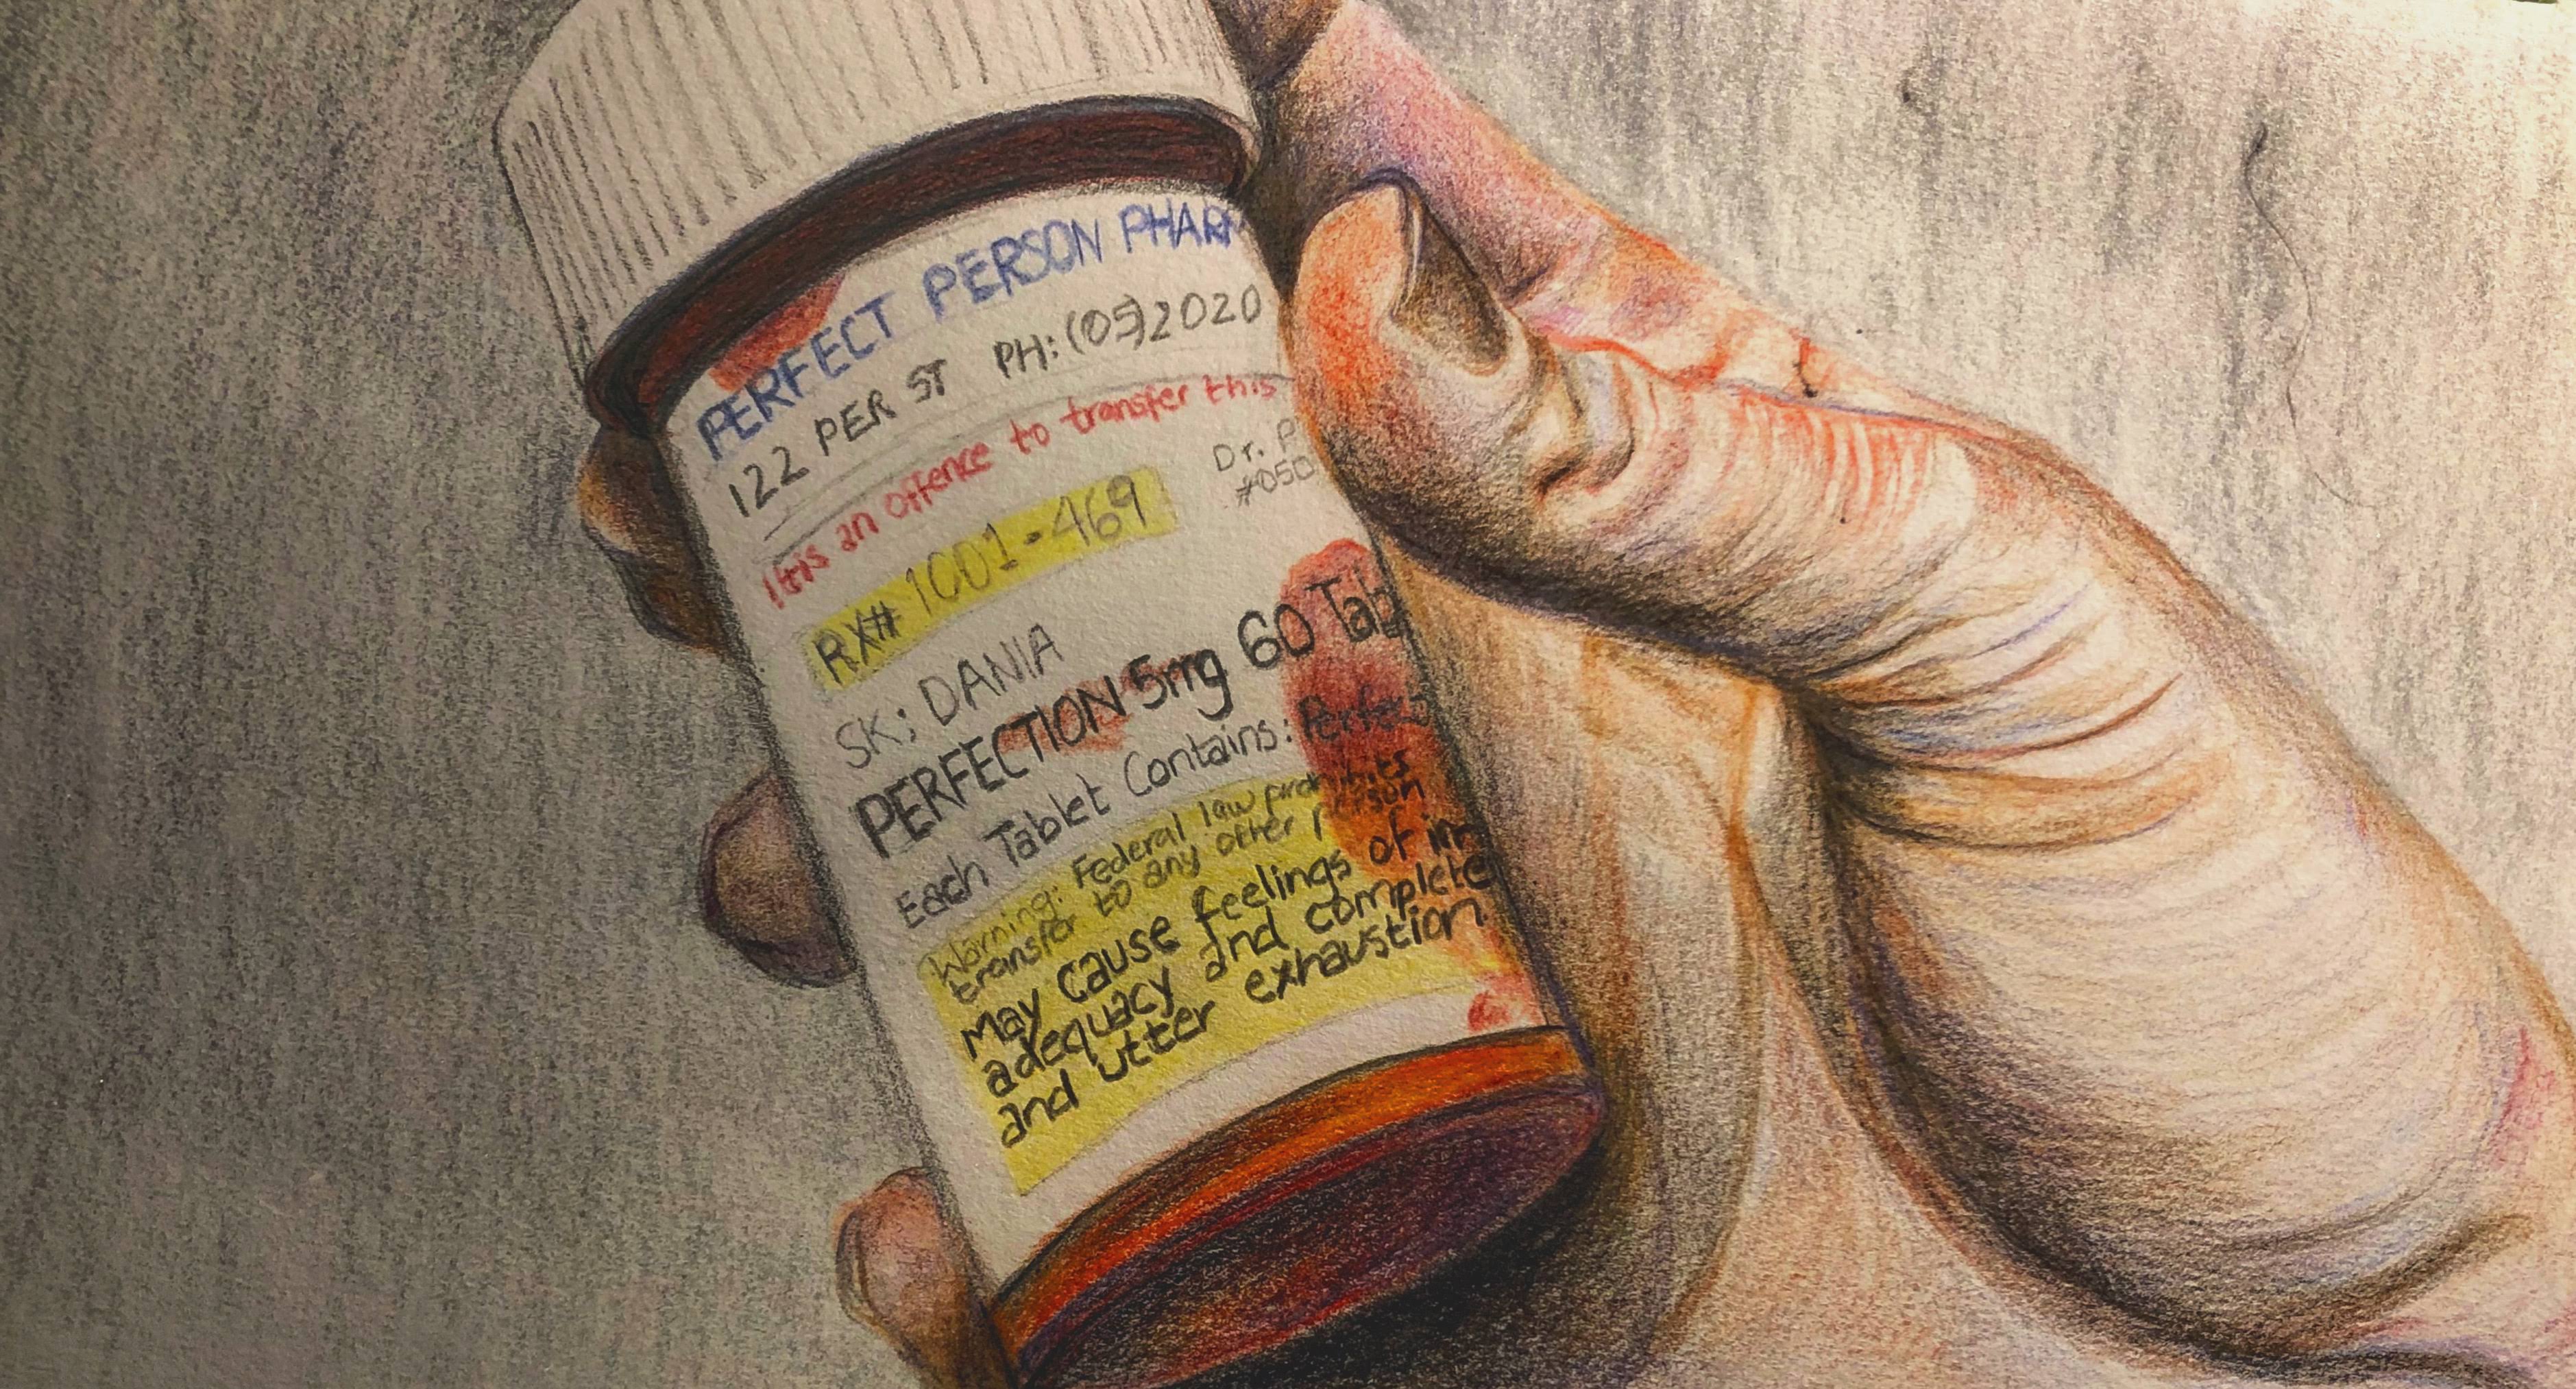 PERFECT PERSON PHARM
122 PER ST PH: (05)2020
It is an offence to transfer this
Dr. P
RX# 1001-469
#050
SK; DANIA
PERFECTION 5mg 60 Tab
Each Tablet Contains: Perfect
Warning: Federal law prohibits
transfer to any other person
may cause feelings of in
adequacy and complete
and utter exhaustion.